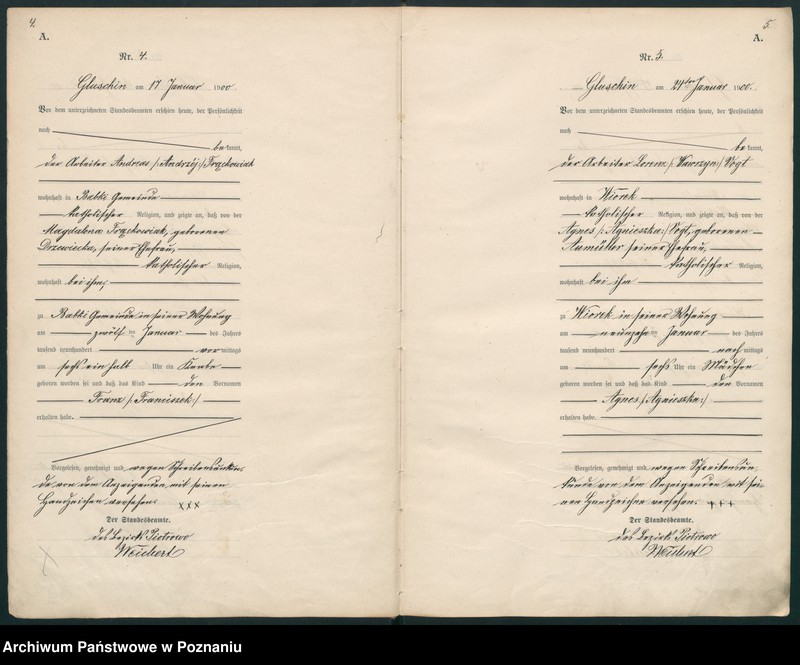 4.
A.
Nr. 4.
Gluschin am 17 Januar 1900
Vor dem unterzeichneten Standesbeamten erschien heute, der Persönlichkeit
nach
bekannt,
der Arbeiter Andreas /:Andrzéj:/ Frąckowiak
wohnhaft in Babki Gemeinde
katholischer Religion, und zeigte an, daß von der
Magdalena Frąckowiak, geborenen
Drzewiecka, seiner Ehefrau,
katholischer Religion,
wohnhaft bei ihm,
zu Babki Gemeinde in seiner Wohnung
am zwölften Januar des Jahres
tausend neunhundert vormittags
um sechs ein halb Uhr ein Knabe
geboren worden sei und daß das Kind den Vornamen
Franz /:Franciszek:/
erhalten habe.
Vorgelesen, genehmigt und wegen Schreibensunkun
de von dem Anzeigenden mit seinem
Handzeichen versehen.
xxx
Der Standesbeamte.
des Bezirks Piotrowo
Weichert
5.
A.
Nr. 5.
Gluschin am 24ten Januar 1900.
Vor dem unterzeichneten Standesbeamten erschien heute, der Persönlichkeit
nach
bekannt,
der Arbeiter Lorenz /:Wawrzyn:/ Vogt
wohnhaft in Wiorek
katholischer Religion, und zeigte an, daß von der
Agnes /:Agnieszka:/ Vogt, geborenen
Aumüller seiner Ehefrau,
katholischer Religion,
wohnhaft bei ihm
zu Wiorek in seiner Wohnung
am neunzehnten Januar des Jahres
tausend neunhundert nachmittags
um sechs Uhr ein Mädchen
geboren worden sei und daß das Kind den Vornamen
Agnes /:Agnieszka:/
erhalten habe.
Vorgelesen, genehmigt und wegen Schreibensun
kunde von dem Anzeigenden mit sei
nem Handzeichen versehen. +++
Der Standesbeamte.
des Bezirks Piotrowo
Weichert
Archiwum Państwowe w Poznaniu